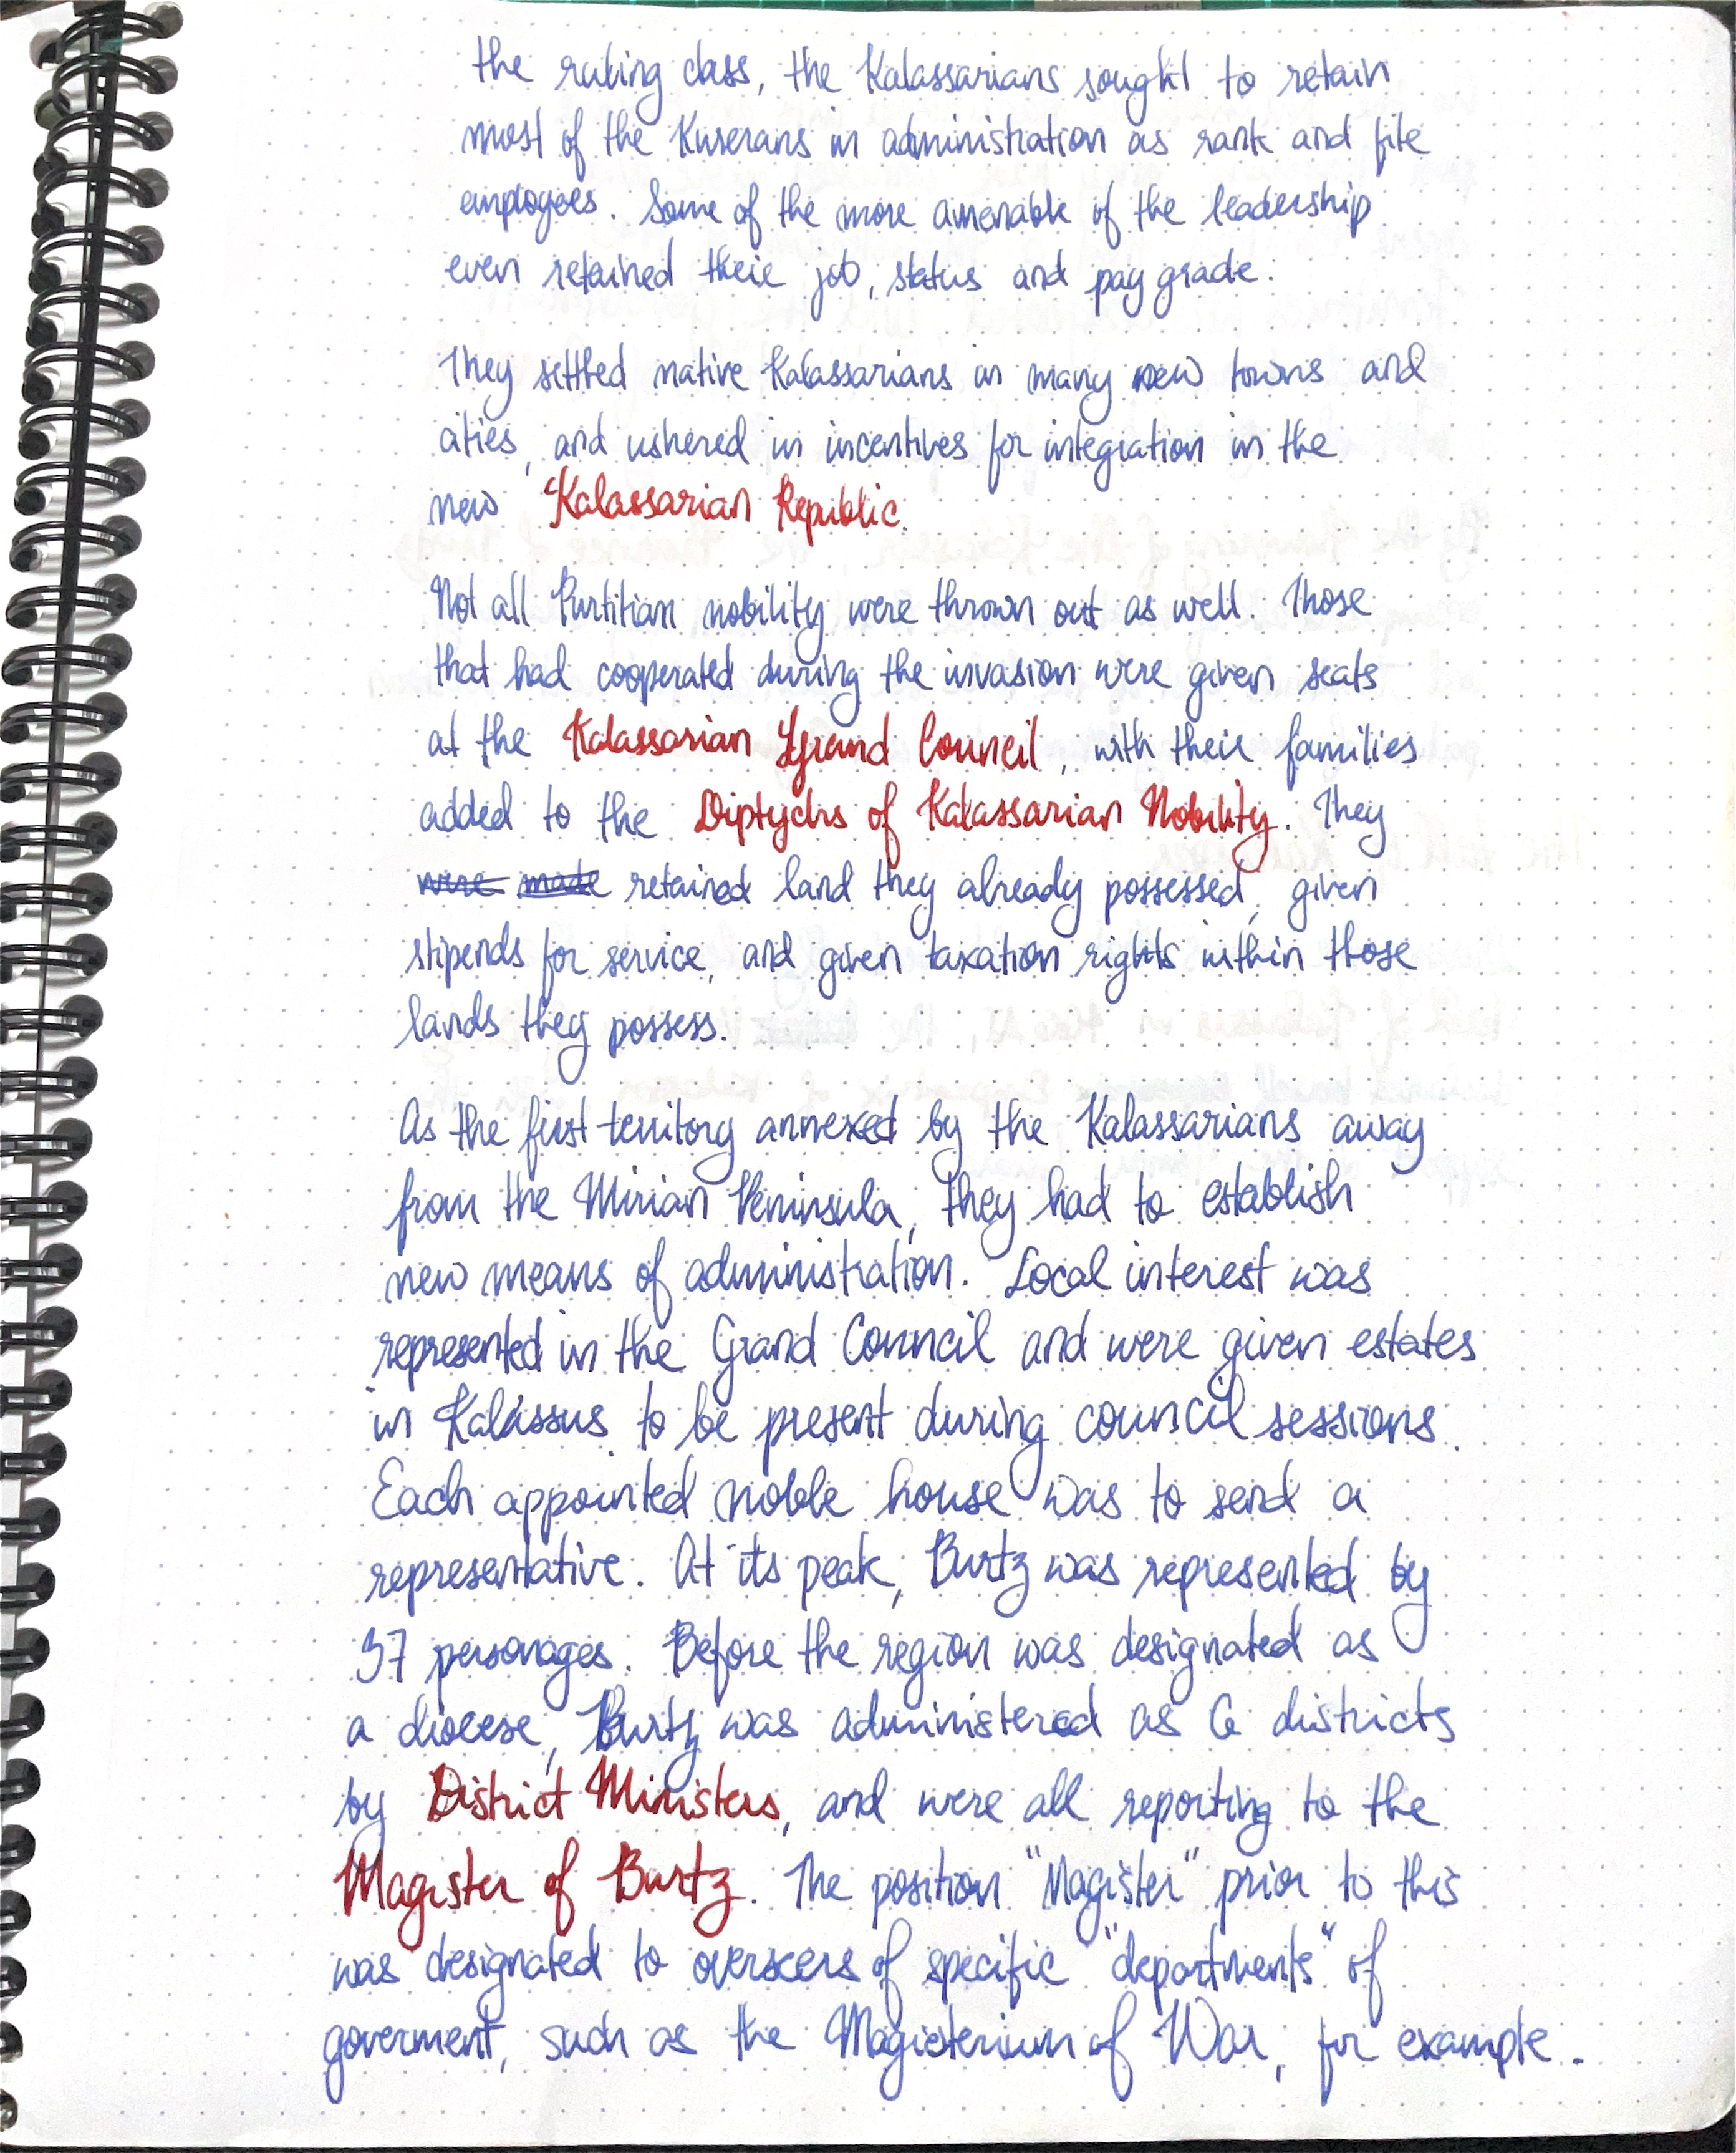 the ruling class, the Kalassarians sought to retain
most of the Kuserans in administration as rank and file
employees. Some of the more amenable of the leadership
even retained their job, status and pay grade.
They settled native Kalassarians in many new towns and
cities, and ushered in incentives for integration in the
new "Kalassarian Republic.
Not all Purtitian nobility were thrown out as well. Those
that had cooperated during the invasion were given seats
at the Kalassarian Grand Council, with their families
added to the Diptychs of Kalassarian Nobility. They
were made retained land they already possessed, given
stipends for service, and given taxation rights within those
lands they possess.
As the first territory annexed by the Kalassarians away
from the Mirian Peninsula, they had to establish
new means of administration. Local interest was
represented in the Grand Council and were given estates
in Kalassus to be present during council sessions.
Each appointed noble house was to send a
representative. At its peak, Burtz was represented by
37 personages. Before the region was designated as
a diocese, Burtz was administered as 6 districts
by District Ministers, and were all reporting to the
Magister of Burtz. The position "Magister" prior to this
was designated to overseers of specific "departments" of
goverment, such as the Magisterium of War, for example.